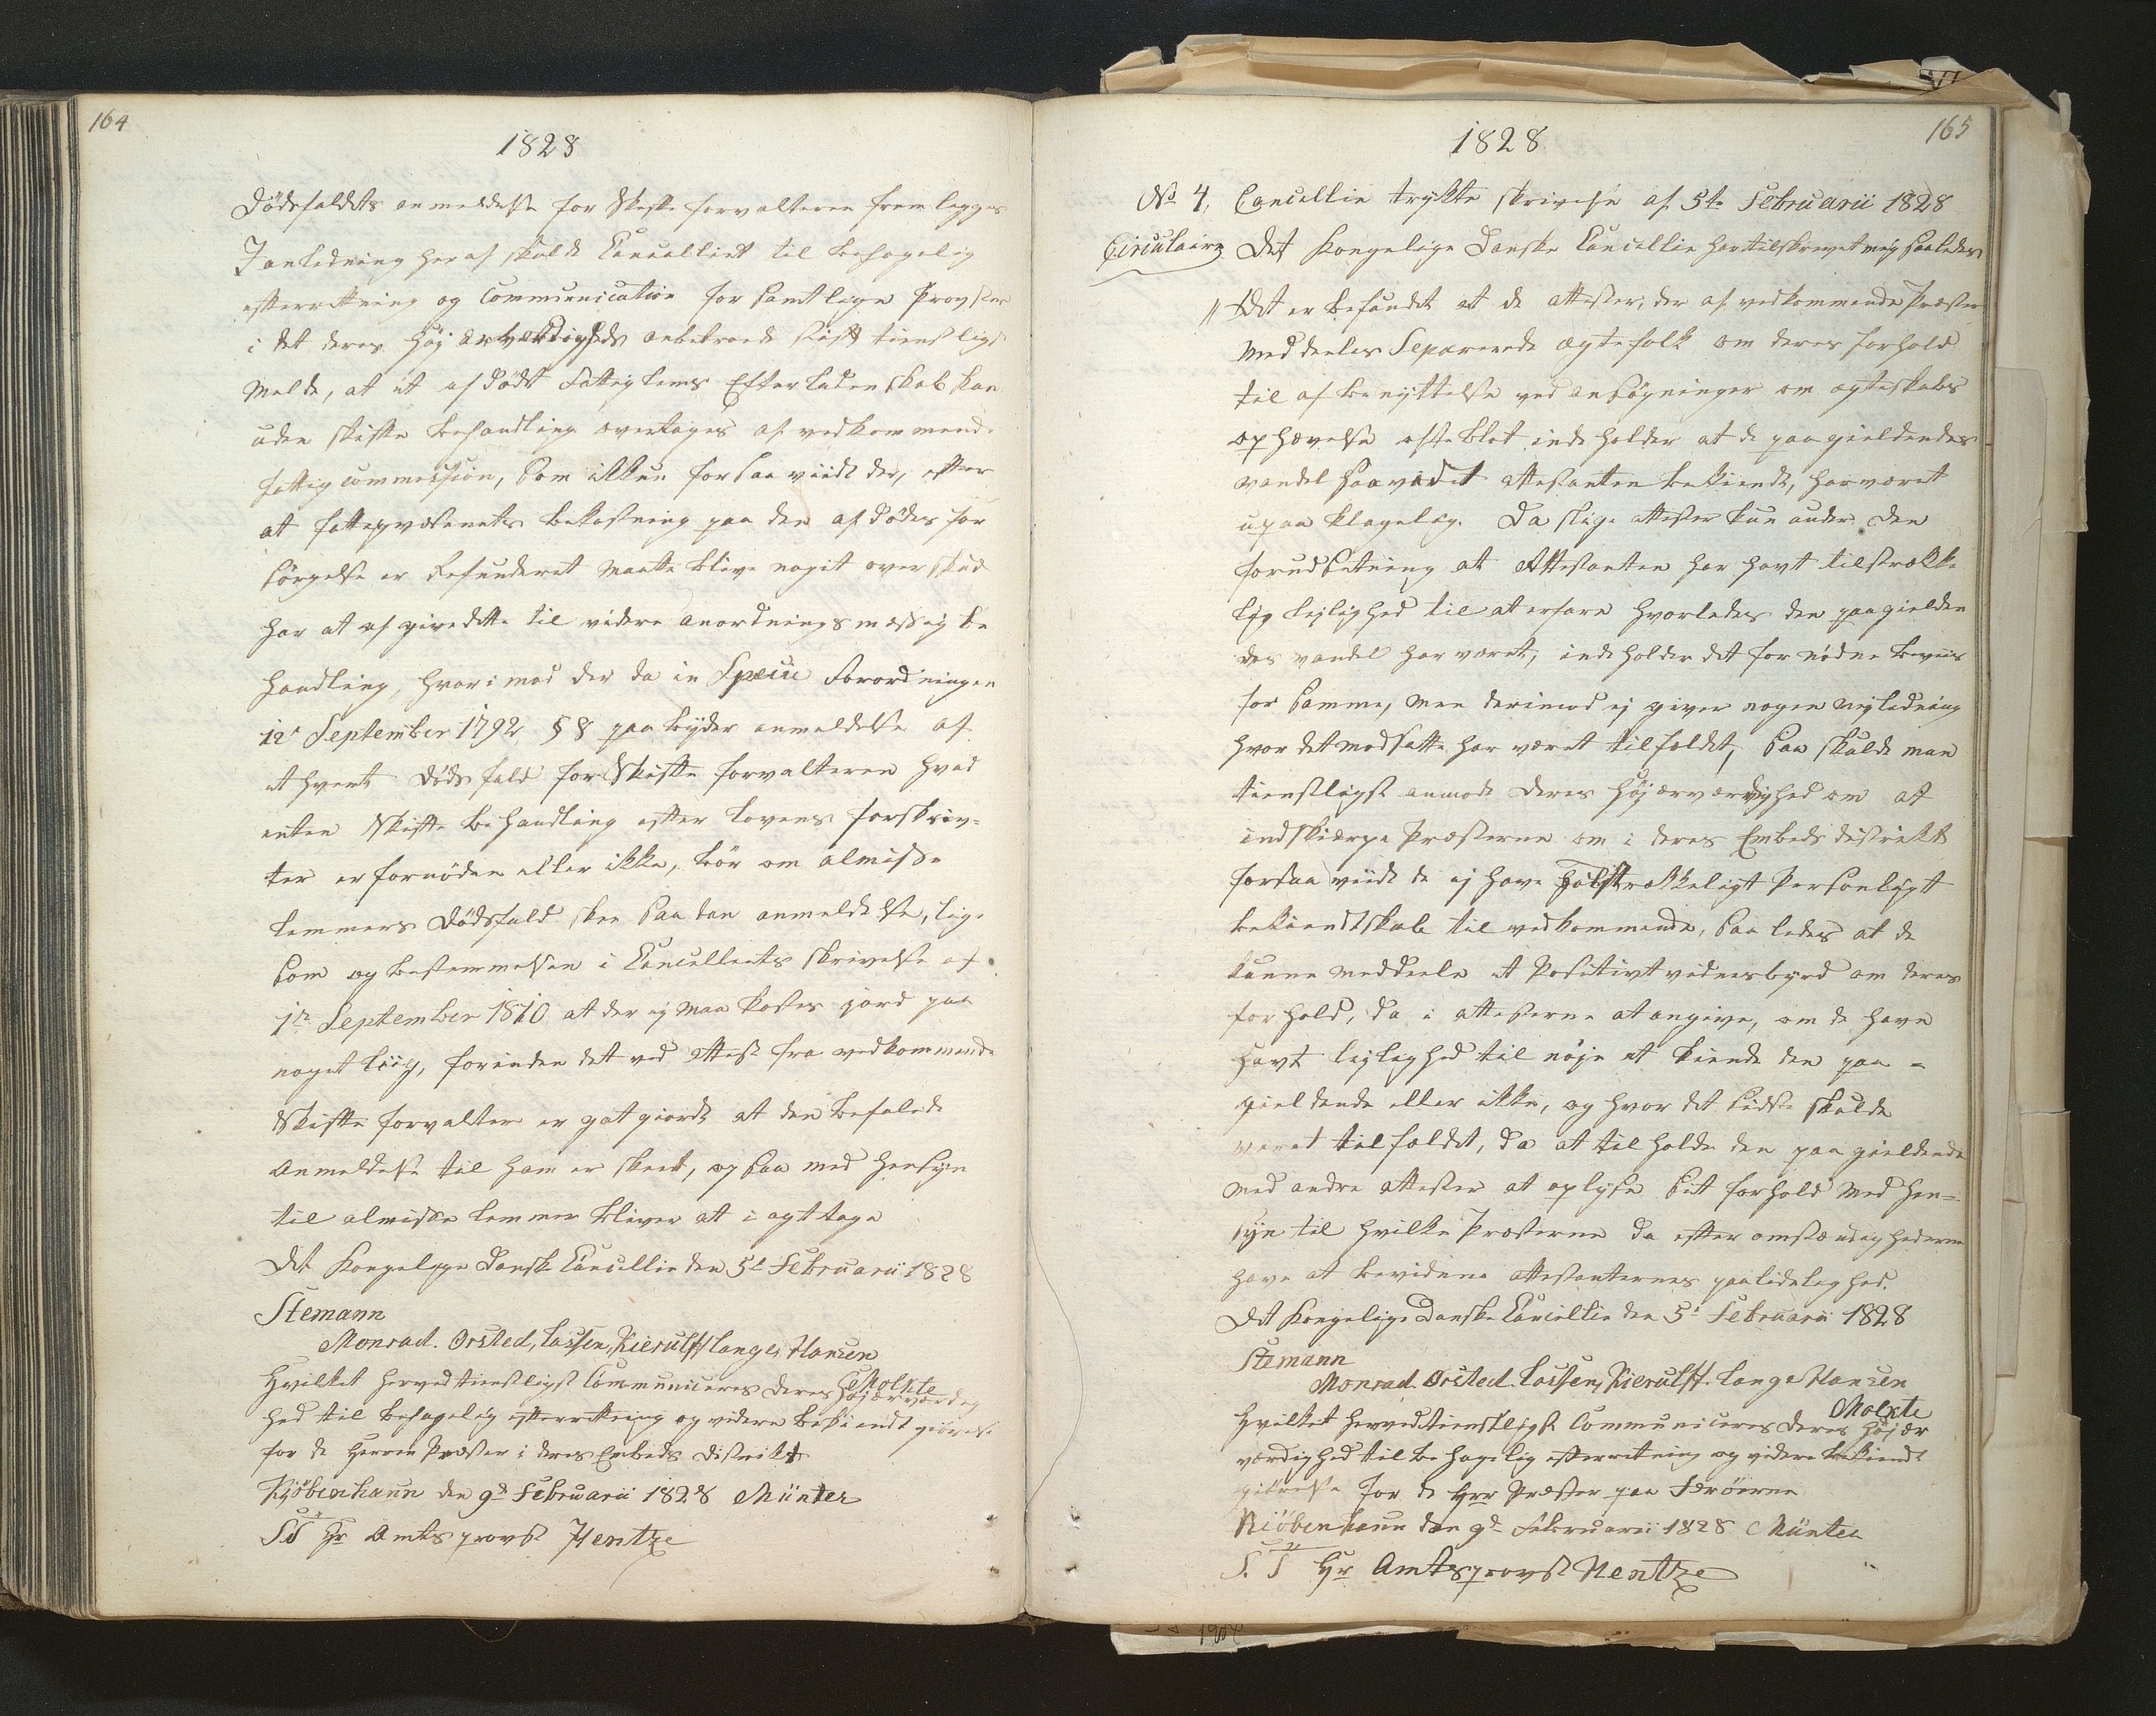 164
1828
Dödsfaldets anmeldelse for Skifte forvalteren fremlegges
I anledning heraf skulde Cancelliet til behagelig
efterretning og Communication for samtlige Provster
i det deres Høj ærværdigheds anbetroede stift tienstligst
melde, at et afdödt Fattiglems Efterladenskab kan
uden skifte behandling overtages af vedkommende
fattigcommission, som ikkun for saa viidt der, efter
at fattigvæsenets bekostning paa den af dödes for
sörgelse er Refunderet maatte blive noget overskud
har at afgive dette til videre anordningsmæssig be
handling, hvorimod der da in Specie Forordningen
12t September 1792 § 8 paabyder anmeldelse af
et hvert Dödsfald for Skifte forvalteren hvad
enten Skifte behandling efter lovens forskriv-
ter er fornöden eller ikke, bör om almisse
lemmers Dödsfald skee saadan anmeldelse, lige
som og bestemmelsen i Cancelliets skrivelse af
1te September 1810 at der ej maa kastes jord paa
noget Liig, forinden det ved Attest fra vedkommende
Skifte forvalter er gotgiordt at den befalede
anmeldelse til ham er skeet, og saa med hensyn
til almisse lemmer bliver at i agttage
Det Kongelige Danske Cancellie den 5t Februarii 1828
Stemann
Monrad. Örsted, Lassen, Kierulff Lange, Hansen
Moltke
Hvilket herved tienstligst Communiceres Deres Højærværdig
hed til behagelig efterretning og videre bekiendtgiörelse
for de Herrer Præster i deres Embeds Distrikt
Kjöbenhaun den 9d Februarii 1828 Münter
S.T. Hr Amtsprovst Hentze
165
1828
No 4. Cancellie trykte skrivelse af 5te Februarii 1828
Circulaire Det Kongelige Danske Cancellie har tilskrevet mig saaledes
// Det er befundet at de attester, der af vedkommende Præster
meddeeles Separerede ægtefolk om deres forhold
til af benyttelse ved ansögninger om ægteskabs
ophævelse ofte blot inde holder at de paagieldendes
vandel saavidt attestanten bekiendt, har været
upaa klagelig. Da slige attester kun under den
forudsetning at Attestanten har havt tilstrække
lig lejlighed til at erfare hvorledes den paagielden
des vandel har været, inde holder det fornödne beviis
for samme, men derimod ej giver nogen vejledning
hvor det modsatte har været tilfældet, saa skulde man
tienstligst anmode Deres Højærværdighed om at
indskiærpe Præsterne om i deres Embeds distrikt
forsaaviidt de ej have tilstrækkeligt Personligt
bekiendtskab til vedkommende, saaledes at de
kunne meddeele et Positivt vidnesbyrd om deres
forhold, da i attesterne at angive, om de have
havt lejlighed til nöje at kiende den paa-
gieldende eller ikke, og hvor det sidste skulde
været tilfældet, da at tilholde den paagieldende
med andre attester at oplyse sit forhold med hen-
syn til hvilke Præsterne da efter omstændighederne
have at bevidne attestanternes paalidelighed.
Det Kongelige Danske Cancellie den 5t Februarii 1828
Stemann
Monrad. Örsted. Lassen, Kierulff. Lange Hansen
Moltke
Hvilket herved tienstligst Communiceres Deres Højær
værdighed til behagelig efterretning og videre bekiendt
giörelse for de Hrr Præster paa Færöerne
Kiöbenhaun den 9d Februarii 1828 Münter
S. T. Hr Amtsprovst Hentze